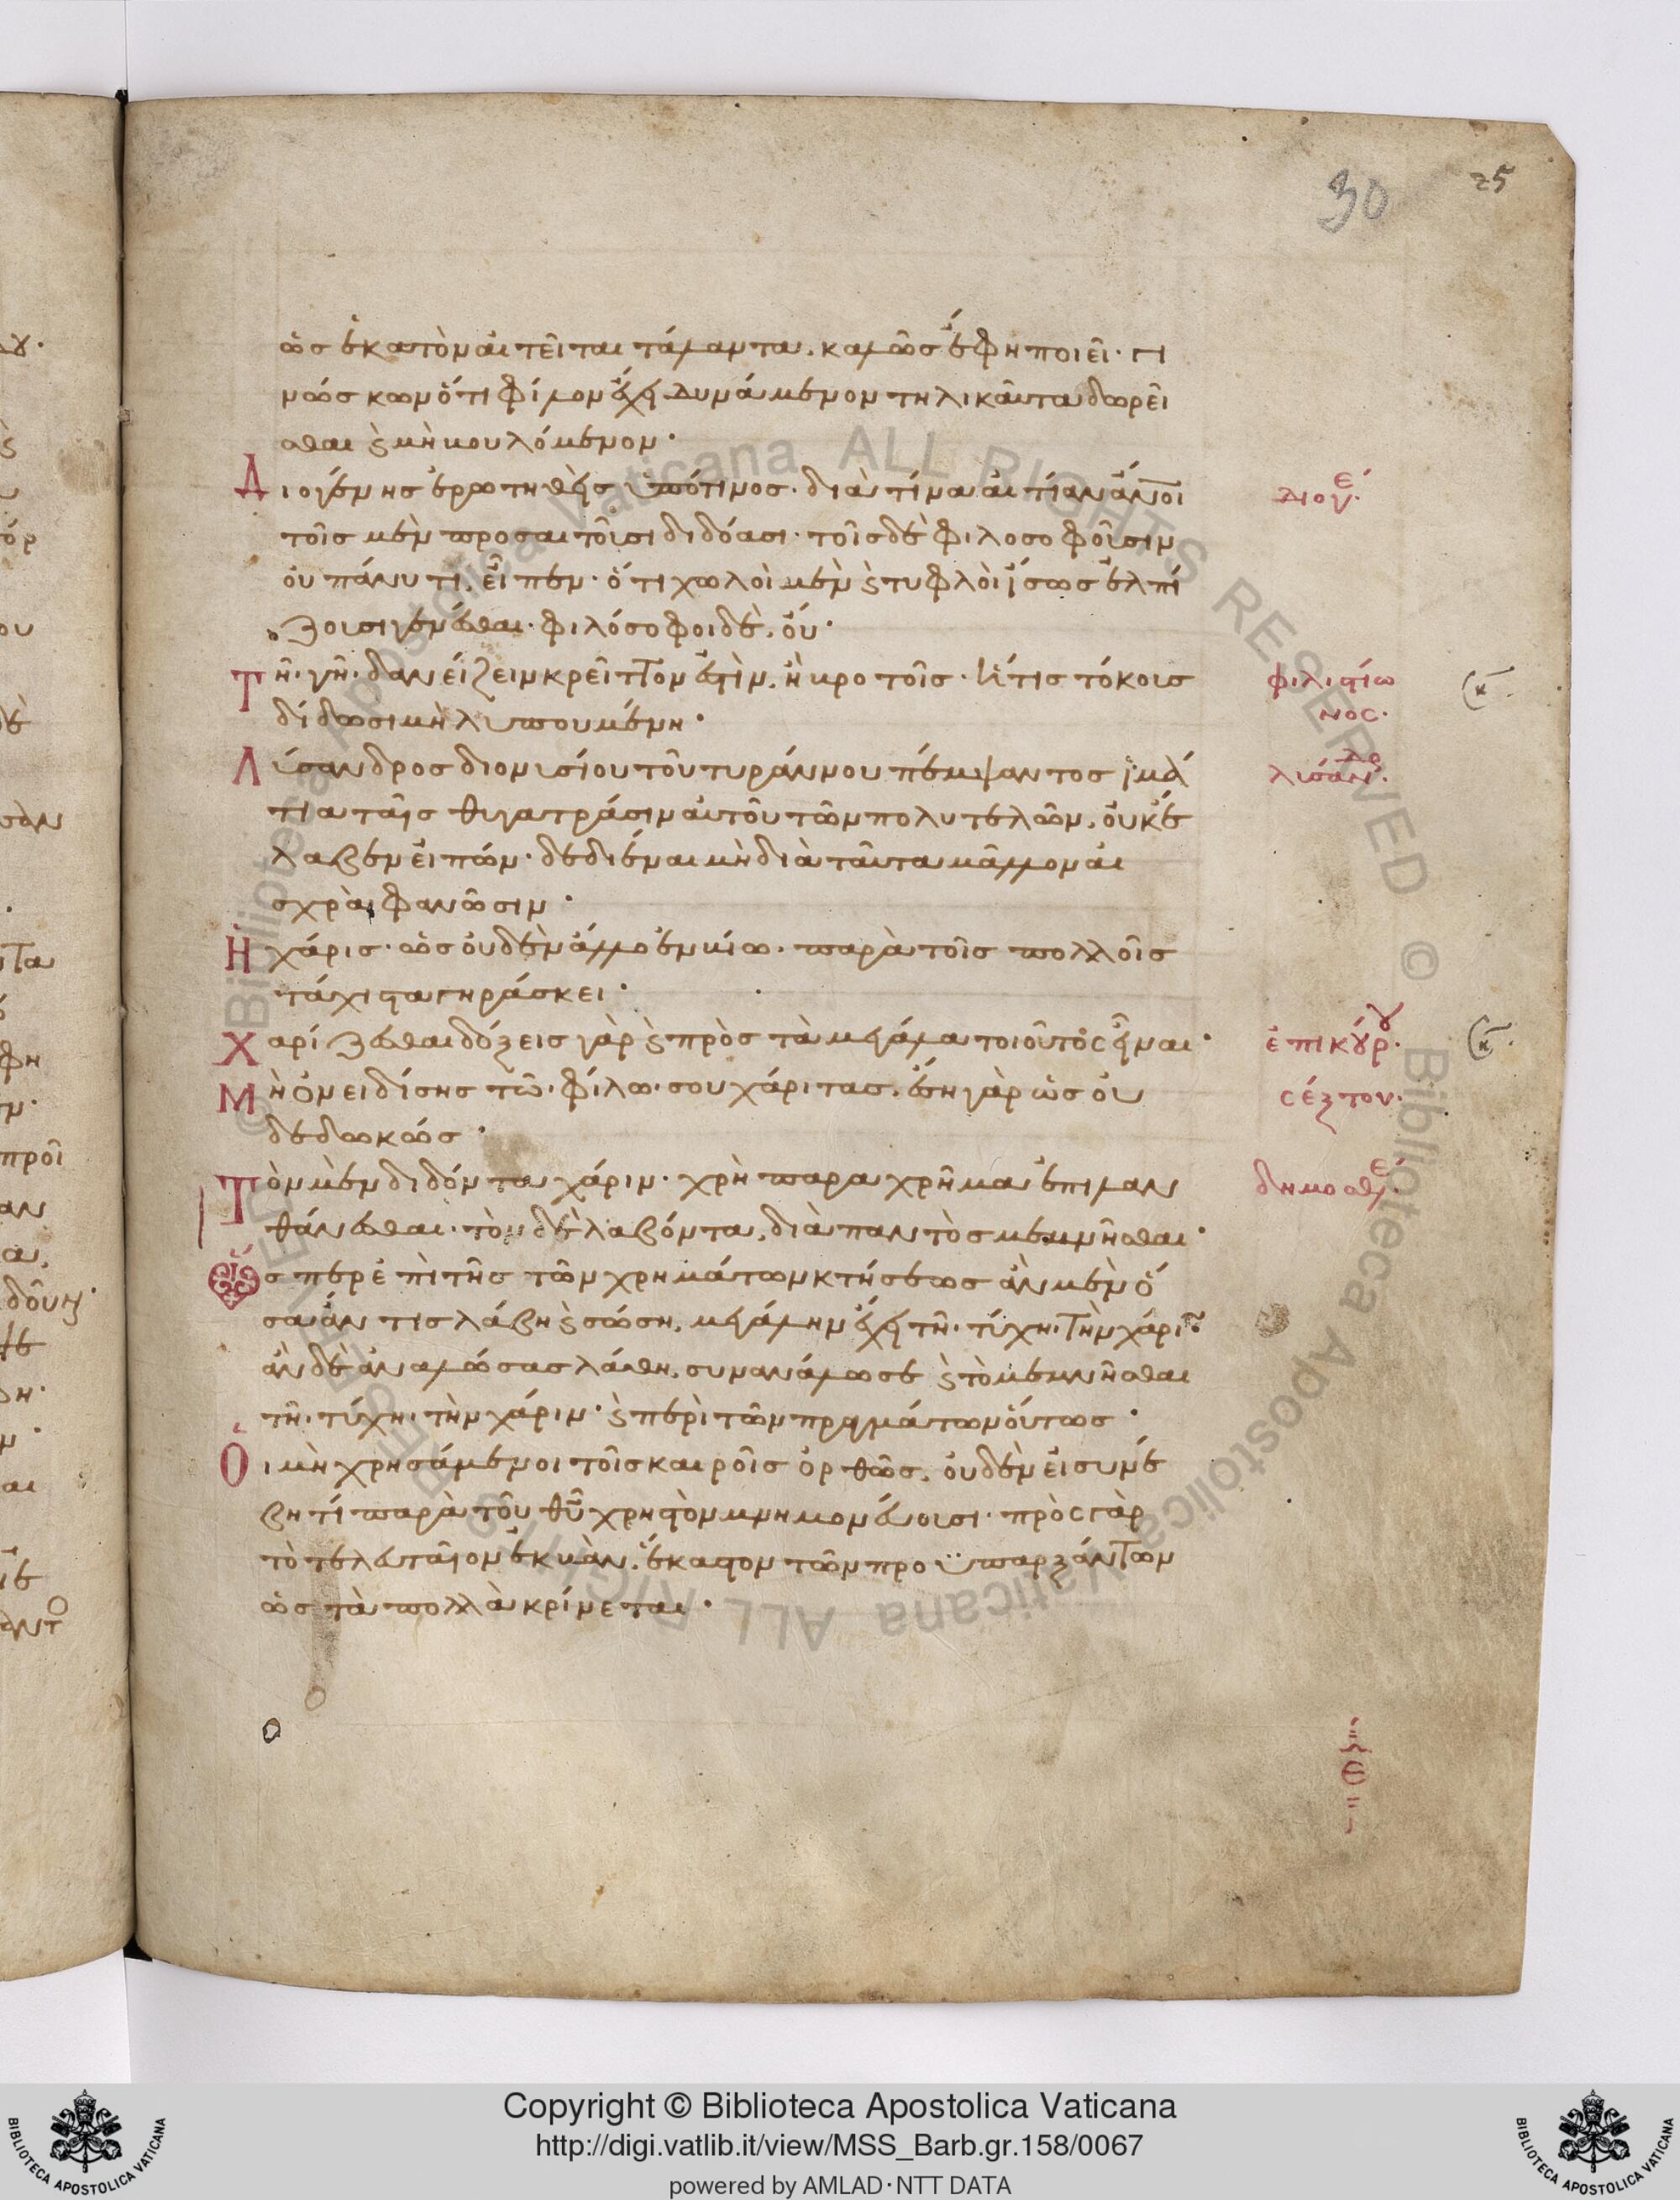 30 25
ὡς ἑκατὸν αἰτεῖται τάλαντα. καλῶς ἔφη ποιεῖ· γι
νώσκων ὅτι φίλον ἔχει δυνάμενον τηλικαῦτα δωρεῖ
σθαι καὶ μὴ βουλόμενον·
Διογένης ἐρωτηθεὶς ὑπό τινος· διὰ τίνα αἰτίαν ἄνοι
τοῖς μὲν προσαιτοῦσι διδόασι· τοῖς δὲ φιλοσοφοῦσιν
οὐ πάνυ τι. εἶπεν· ὅτι χωλοὶ μὲν καὶ τυφλοὶ ἴσως ἐλπί
ζουσι γενέσθαι· φιλόσοφοι δὲ. οὔ·
Τῆ γῆ δανείζειν κρεῖττον ἐστὶν. ἢ βροτοῖς· ἥτις τόκους
δίδωσι μὴ λυπουμένη·
Λύσανδρος διονυσίου τοῦ τυράννου πέμψαντος ἱμά
τια ταῖς θυγατράσιν αὐτοῦ τῶν πολυτελῶν. οὐκ ἔ
λαβεν εἰπών· δεδιέναι μὴ διὰ ταῦτα μᾶλλον αἰ
σχραὶ φανῶσιν·
Ἡ χάρις· ὡς οὐδὲν ἄλλο ἐν βίω. παρὰ τοῖς πολλοῖς
τάχιστα γηράσκει·
Χαρίζεσθαι δόξεις γὰρ καὶ πρὸς τὰ μεγάλα τοιοῦτος εἶναι·
Μὴ ὀνειδίσης τῶ φίλω σου χάριτας. ἔση γὰρ ὡς οὐ
δεδωκώς·
Τὸν μὲν διδόντα χάριν· χρὴ παραχρῆμα ἐπιλαν
θάνεσθαι· τὸν δὲ λαβόντα. διὰ παντὸς μεμνῆσθαι·
Ὥσπερ ἐπὶ τῆς τῶν χρημάτων κτήσεως ἂν μὲν ὅ
σα ἄν τις λάβη καὶ σώση. μεγάλην ἔχει τῆ τύχη τὴν χάριν·
ἂν δὲ ἀναλώσας λάθη. συνανάλωσε καὶ τὸ μεμνῆσθαι
τῆ τύχη τὴν χάριν· καὶ περὶ τῶν πραγμάτων οὕτως·
Οἱ μὴ χρησάμενοι τοῖς καιροῖς ὀρθῶς. οὐδὲν εἰ συνέ
βη τί παρὰ τοῦ θῦ χρηστὸν μνημονεύουσι· πρὸς γὰρ
τὸ τελευταῖον ἐκβὰν. ἕκαστον τῶν προϋπαρξάντων
ὡς τὰ πολλὰ κρίνεται·
διογέ·
φιλιστίω
νος·
λυσάνδρ·
ἐπικούρου·
σέξτου·
δημοσθέ·
Copyright © Biblioteca Apostolica Vaticana
http://digi.vatlib.it/view/MSS_Barb.gr.158/0067
powered by AMLAD·NTT DATA